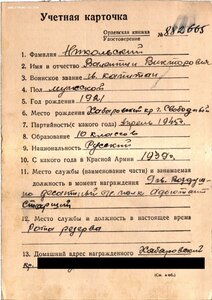 Учетная карточка
Орденская книжка
Удостоверение
№ 882665
1. Фамилия Никольский
2. Имя и отчество Валентин Викторович
3. Воинское звание гв. капитан
4. Пол мужской
5. Год рождения 1921
6. Место рождения Хабаровский кр. г. Свободный
7. Партийность (с какого года) апрель 1945 г.
8. Образование 10 классов
9. Национальность Русский
10. С какого года в Красной Армии 1939 г.
11. Место службы (наименование части) и занимаемая
должность в момент награждения 9 гв. Воздуш-
но десантный полк Адъютант
Старший
12. Место службы и должность в настоящее время
Рота резерва
13. Домашний адрес награжденного Хабаровский
кр.
(См. на об.)